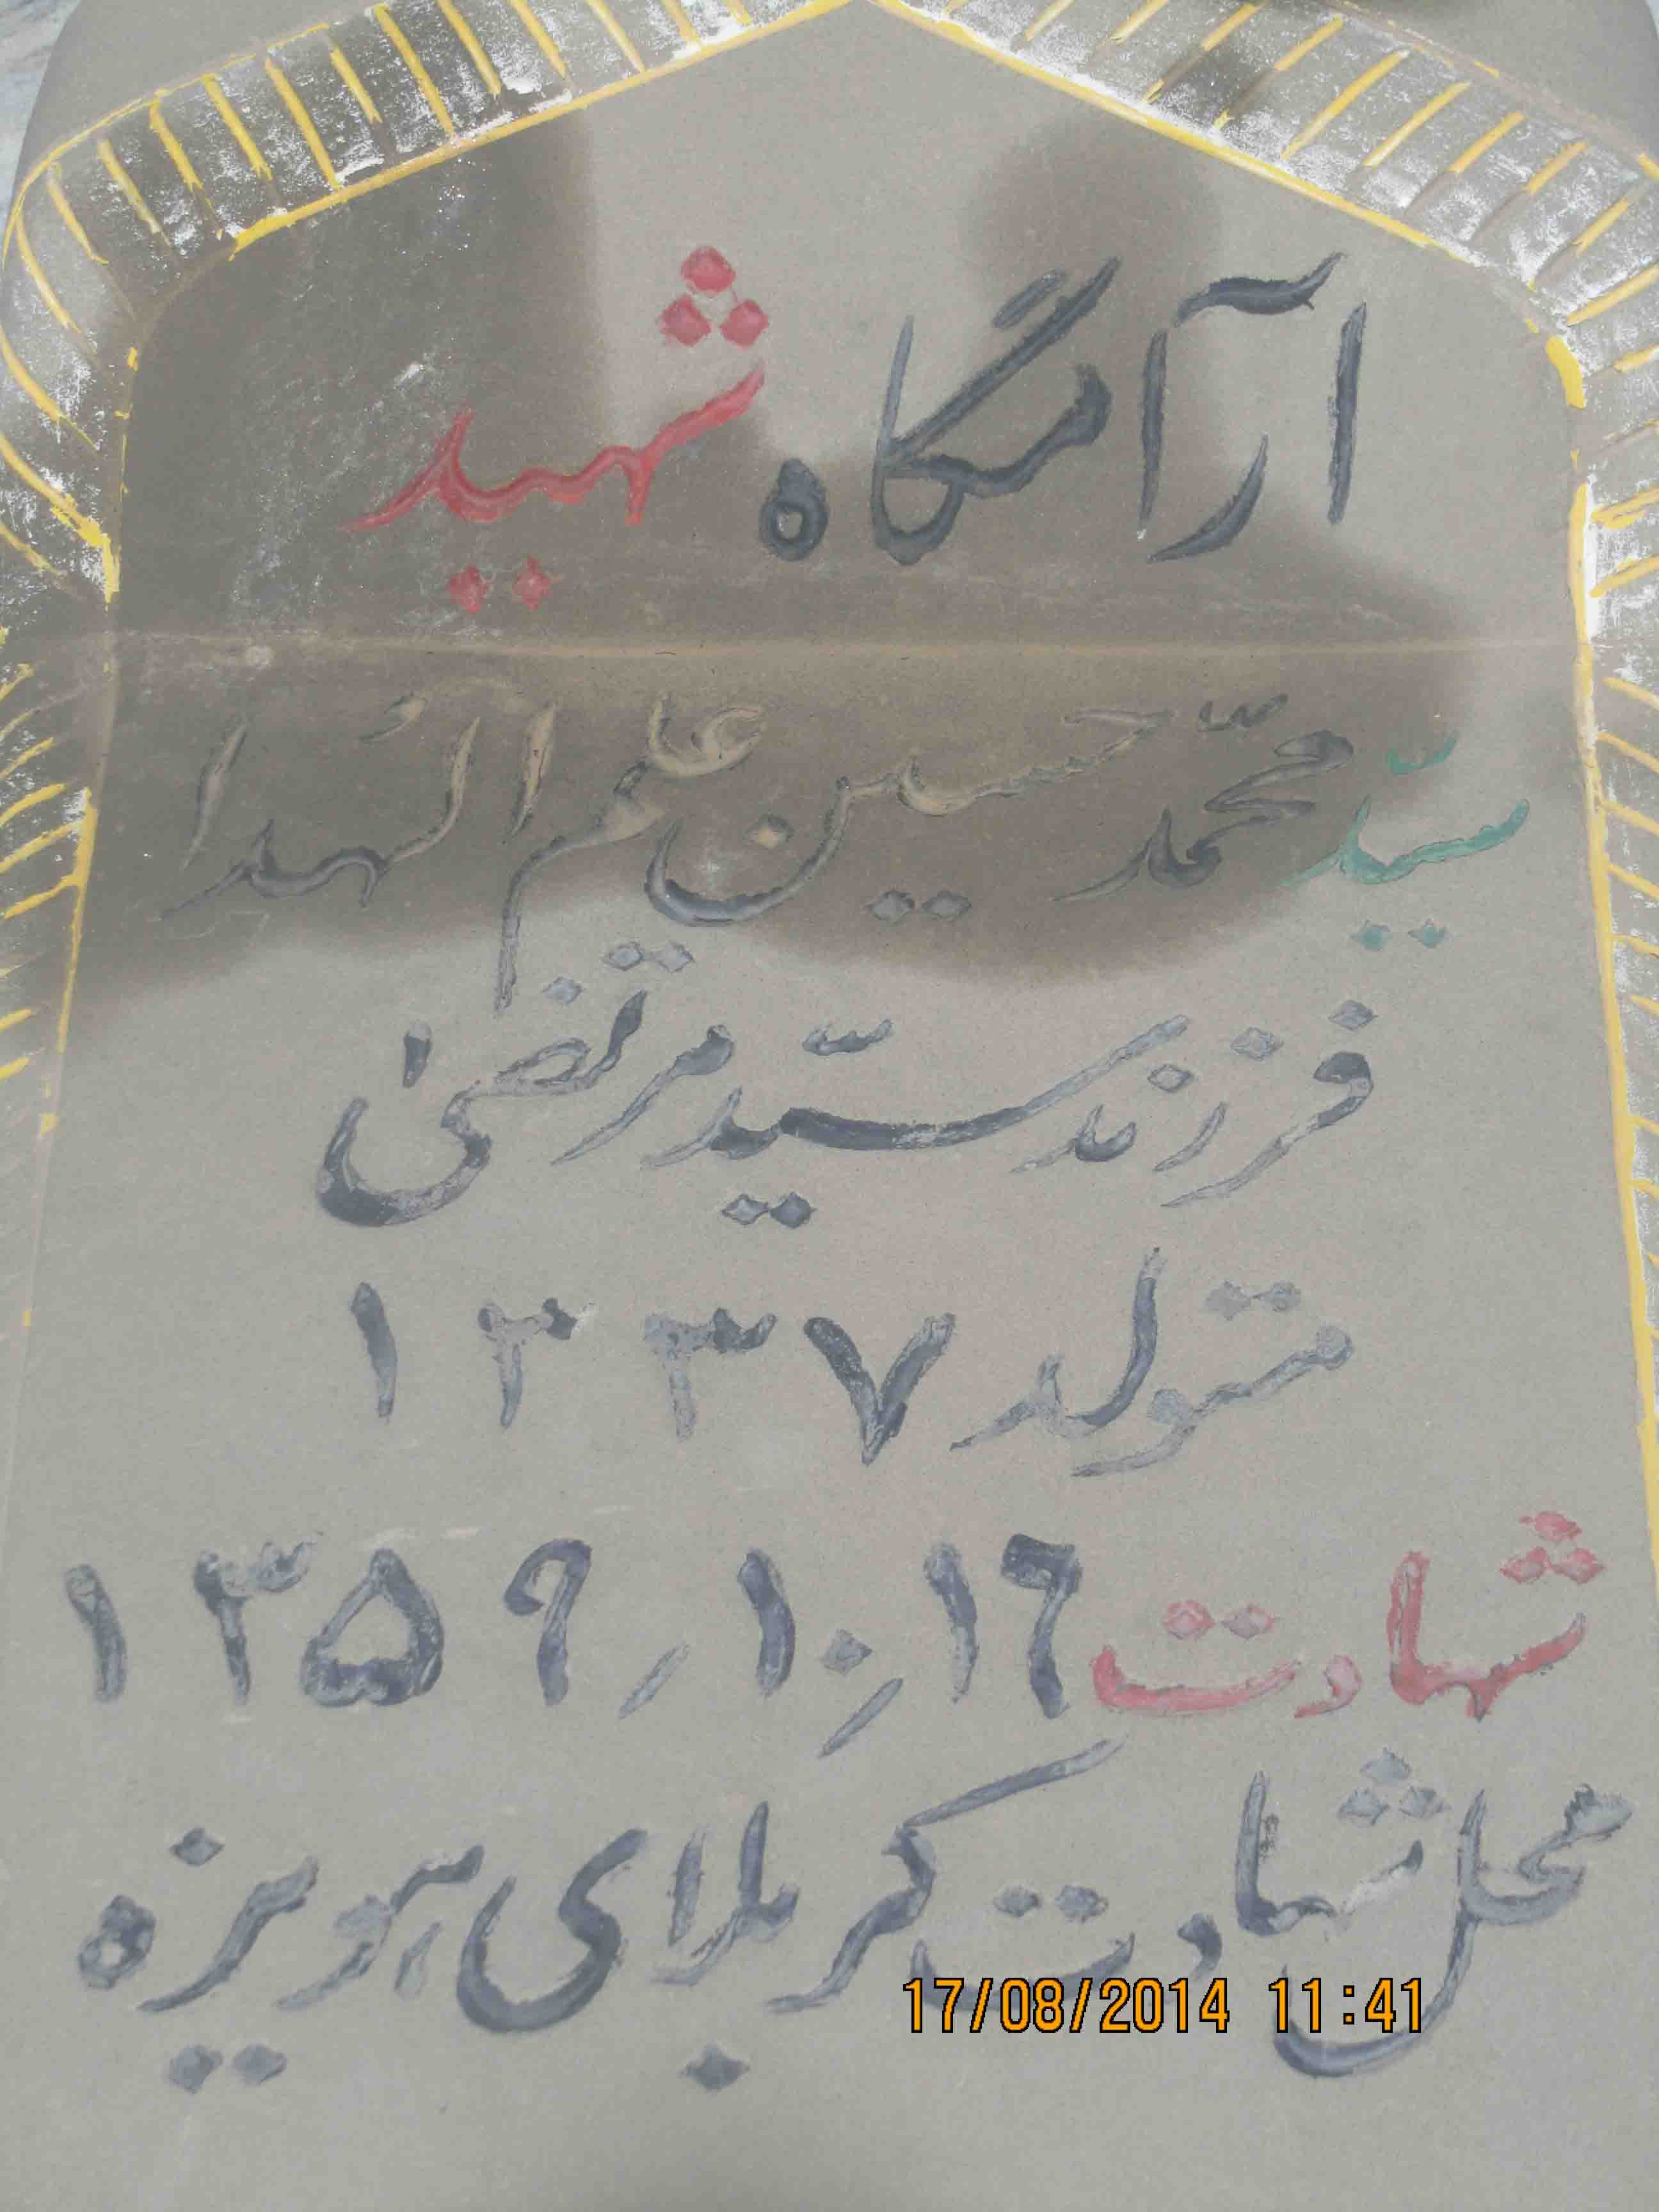 آرامگاه شهید
سیّد محمّد حسین علم الهُدا
فرزند سیّد مرتضیٰ
متولد ۱۳۳۷
شهادت ۱٦٫۱۰٫۱۳۵۹
محل شهادت کربلای هویزه
17/08/2014 11:41